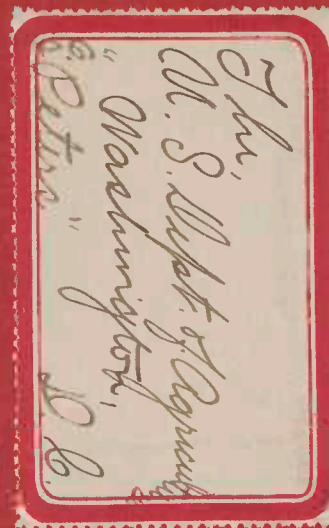 The,
U. S. Dept. of Agricul
" Washington,
" D. C.